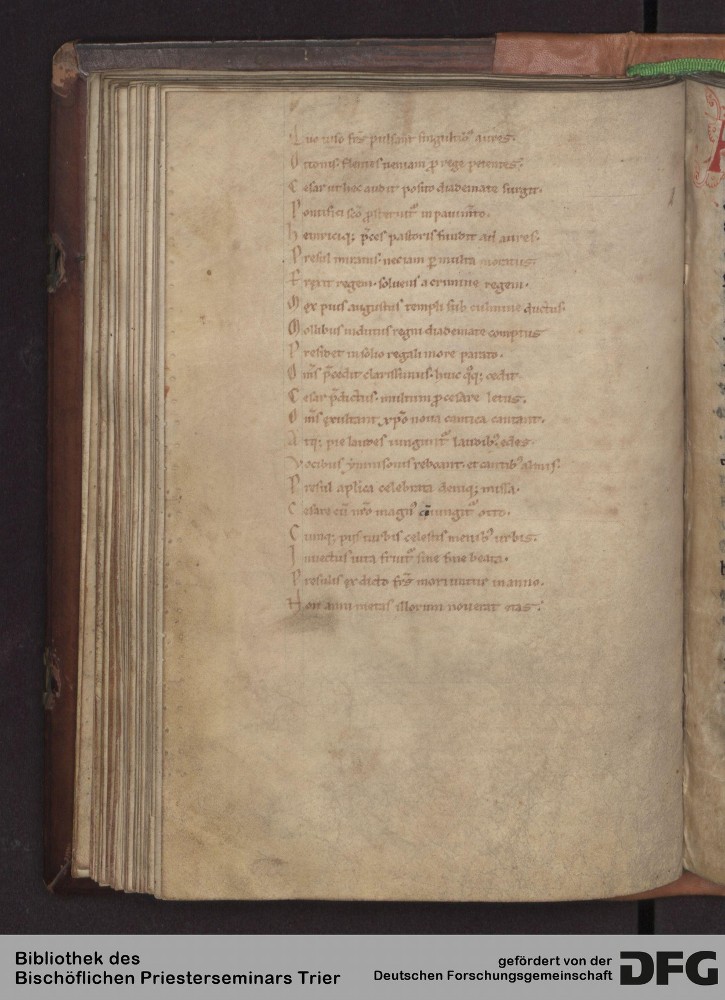 Quo uiso frs̄ pulsant singultibꝰ aures.
Ottonis. flentes ueniam ꝓ rege petentes.
Cesar ut hoc audit posito diademate surgit.
Pontifici sc̄o ꝓsternit᷑ in pauim̄to.
heinriciq; p̄ces pastoris fundit ad aures.
Presul mirans. neciam ꝑ multa
Erexit regem. soluens a crimine regem.
Mox pius augustus templi sub culmine ductus.
Mollibus indutus regni diademate comptus
Presidet in solio regali more parato.
Om̄s p̄cedit clarissimus. huic q̊q; cedit
Cesar p̄dictus. multum ꝓ cesare letus.
Om̄s exultant. xp̄o noua cantica cantant.
Atq; pie laudes iungunt᷑ laudibꝰ edes.
Vocibus ymnisonis reboant. et cantibꝰ almis.
Presul aplica celebrata deniq; missa.
Cesare cū nr̄o magnꝰ cōiungit᷑ otto.
Cumq; pijs turbis celestis menibꝰ urbis.
Inuectus uita fruit᷑ sine fine beata.
Presulis ex dicto frs̄ moriuntur in anno.
Non anni metas illorum nouerat etas.
Bibliothek des
Bischöflichen Priesterseminars Trier
gefördert von der
Deutschen Forschungsgemeinschaft
DFG